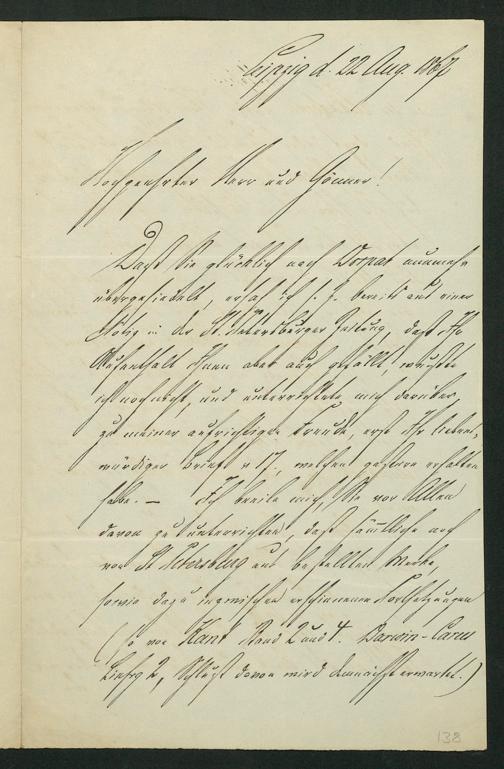 Leipzig d. 22 Aug. 1867
Hochgeehrter Herr und Gönner!
Daß Sie glücklich nach Dorpat nunmehr
übergesiedelt, ersah ich s. Z. bereits aus einer
Notiz in der St. Petersburger Zeitung, daß Ihr
Aufenthalt Ihnen aber auch gefällt, wußte
ich noch nicht, und unterrichtete mich darüber,
zu meiner aufrichtigen Freude, erst Ihr liebens¬
würdiger Brief v 17., welchen gestern erhalten
habe. — Ich beeile mich, Sie vor Allem
davon zu unterrichten, daß sämtliche noch
von St Petersburg aus bestellten Werke,
sowie dazu inzwischen erschienene Fortsetzungen
(so von Kant Band 2 und 4. Darwin-Carus
Liefrg 2, Schluß davon wird demnächst erwartet.)
138